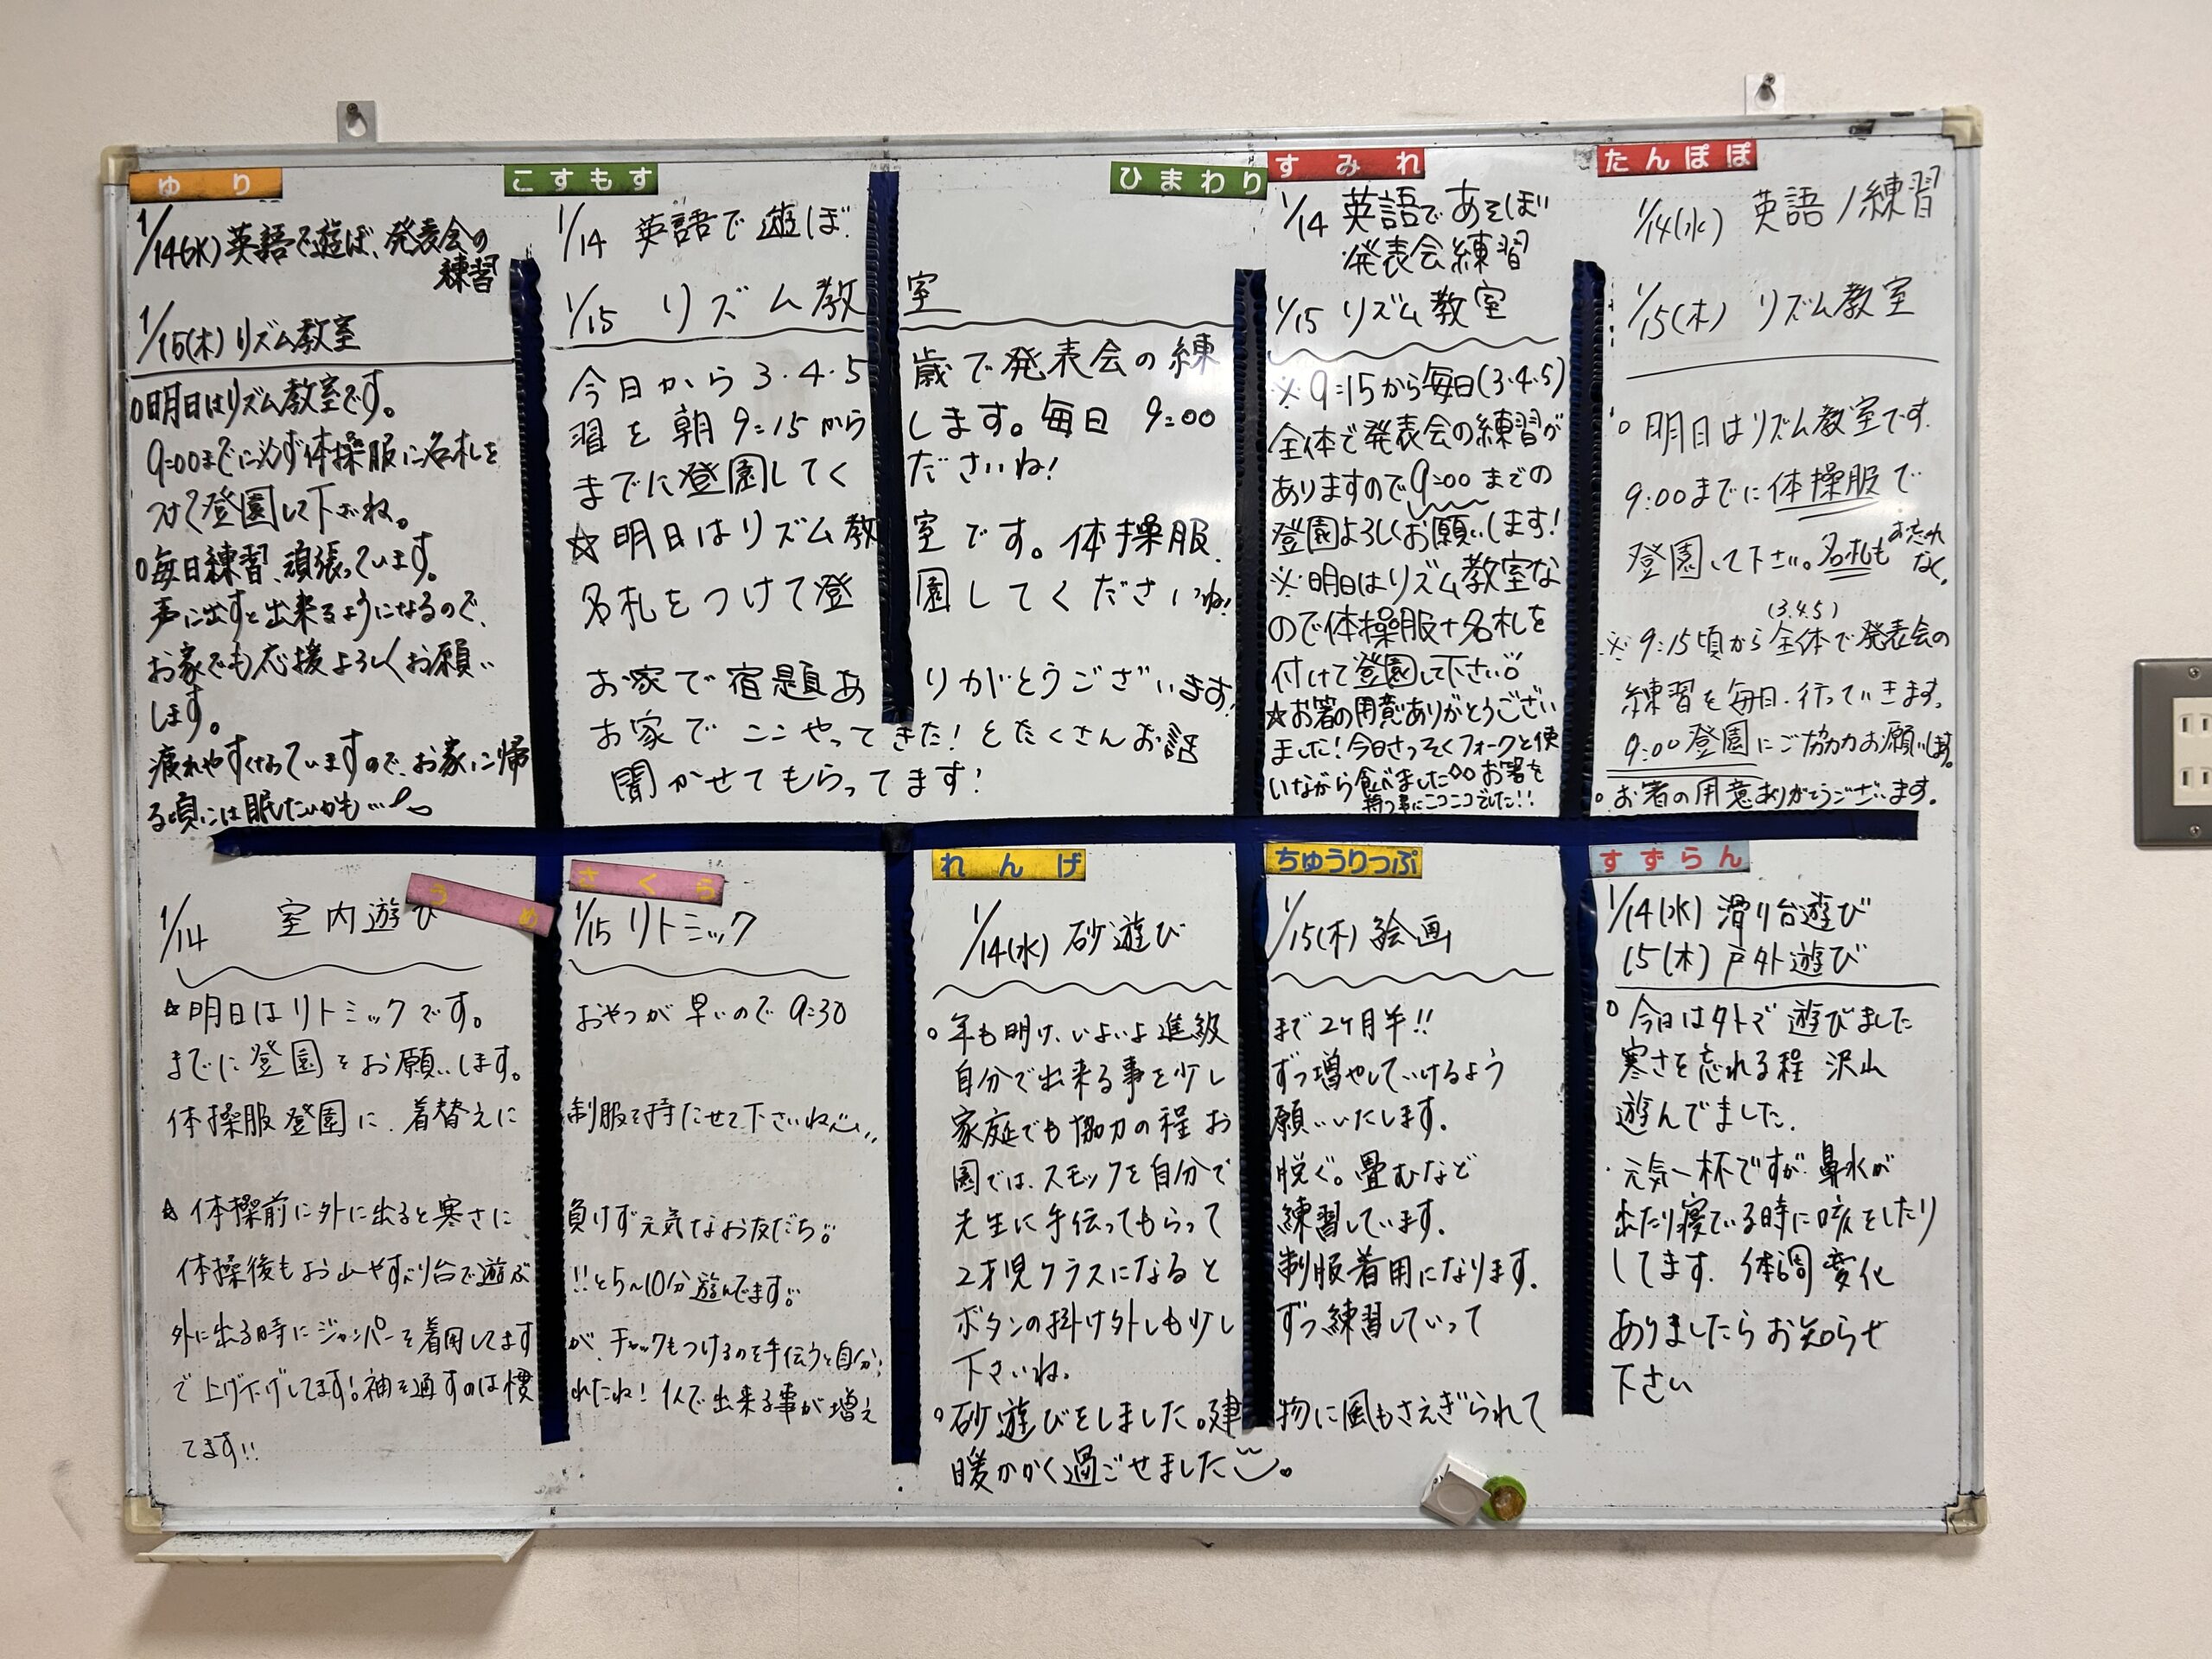 ゆり
1/14(水)英語で遊ぼ、発表会の
練習
1/15(木)リズム教室
○明日はリズム教室です。
9:00までに必ず体操服に名札を
つけて登園して下さいね。
○毎日練習、頑張っています。
声に出すと出来るようになるので、
お家でも応援よろしくお願い
します。
疲れやすくなっていますので、お家に帰
る頃には眠たいかも…
こすもす
ひまわり
1/14 英語で遊ぼ
1/15 リズム教室
今日から3・4・5歳で発表会の練
習を朝9:15からします。毎日 9:00
までに登園してくださいね!
☆明日はリズム教室です。体操服、
名札をつけて登園してくださいね!
お家で宿題ありがとうございます!
お家でここやってきた!とたくさんお話
聞かせてもらってます!
すみれ
1/14 英語であそぼ
発表会練習
1/15 リズム教室
※9:15から毎日(3・4・5)
全体で発表会の練習が
ありますので9:00までの
登園よろしくお願いします!
※明日はリズム教室な
ので体操服+名札を
付けて登園して下さい
☆お箸の用意ありがとうござい
ました!今日さっそくフォークと使
いながら食べました お箸を
持つ事にニコニコでした!!
たんぽぽ
1/14(水) 英語/練習
1/15(木) リズム教室
○明日はリズム教室です。
9:00までに体操服で
登園して下さい。名札もお忘れ
なく。
(3.4.5)
※9:15頃から全体で発表会の
練習を毎日行っていきます。
9:00登園にご協力お願いします。
○お箸の用意ありがとうございます。
うめ
さくら
1/14 室内遊び
1/15 リトミック
☆明日はリトミックです。 おやつが早いので9:30
までに登園をお願いします。
体操服登園に、着替えに 制服を持たせて下さいね
☆体操前に外に出ると寒さに 負けず元気なお友だち
体操後もお山やすべり台で遊ぶ!!と5~10分遊んでます
外に出る時にジャンパーを着用してますが、チャックもつけるのを手伝うと自分
で上げ下げしてます!袖を通すのは慣れたね!1人で出来る事が増え
てます!!
れんげ
ちゅうりっぷ
1/14(水) 砂遊び
1/15(木) 絵画
○年も明け、いよいよ進級まで2ヶ月半!!
自分で出来る事を少しずつ増やしていけるよう
家庭でも協力の程お願いいたします。
園では、スモックを自分で脱ぐ。畳むなど
先生に手伝ってもらって練習しています。
2才児クラスになると制服着用になります。
ボタンの掛け外しも少しずつ練習していって
下さいね。
○砂遊びをしました。建物に風もさえぎられて
暖かく過ごせました。
すずらん
1/14(水) 滑り台遊び
15(木) 戸外遊び
○今日は外で遊びました
寒さを忘れる程 沢山
遊んでました。
・元気一杯ですが鼻水が
出たり寝ている時に咳をしたり
してます。体調変化
ありましたらお知らせ
下さい